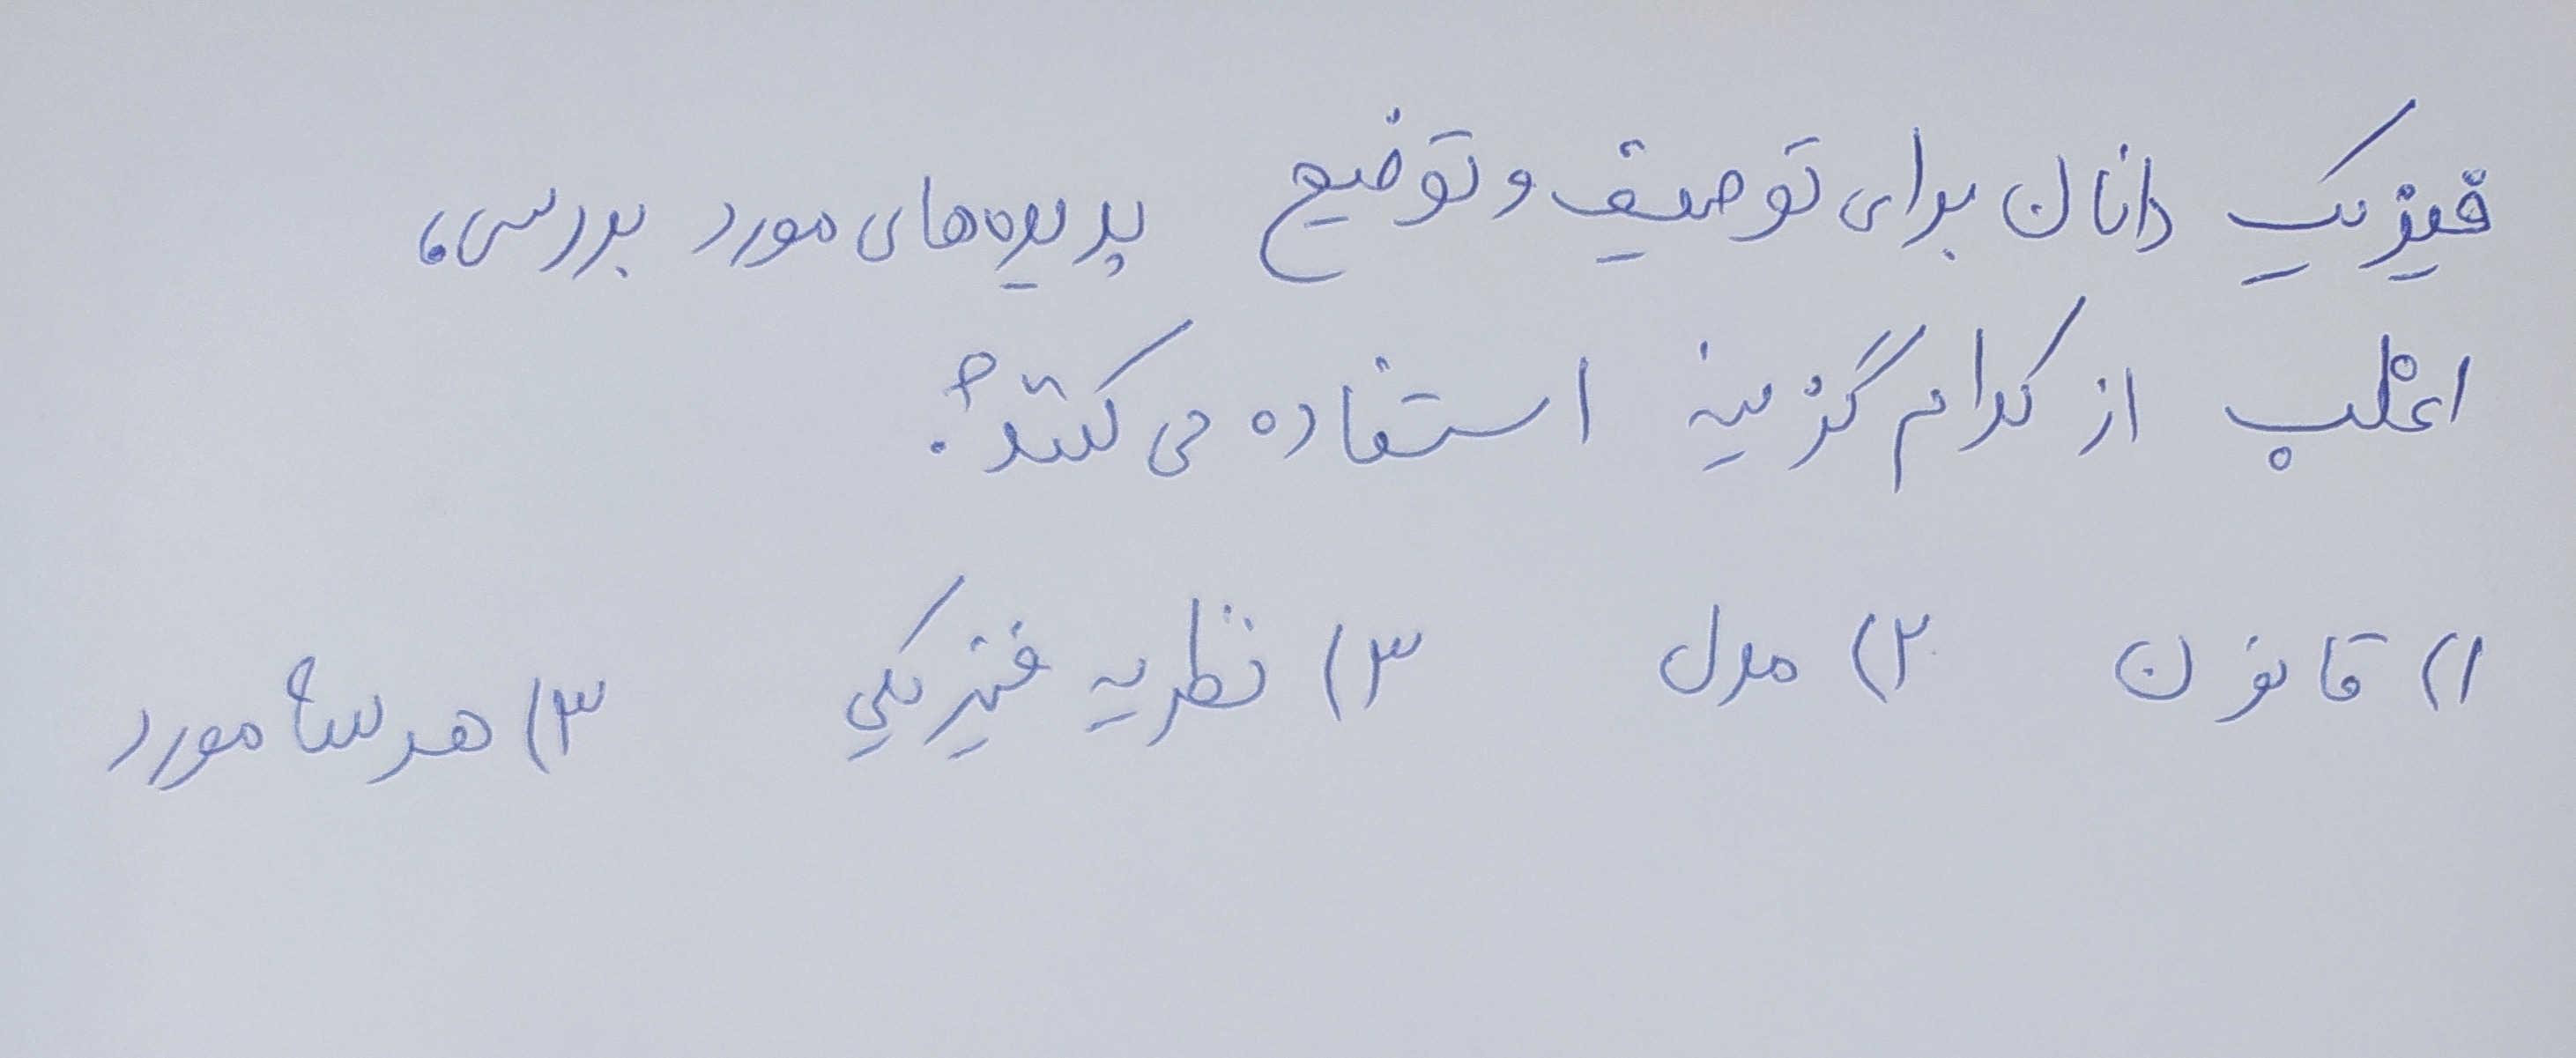 فیزیک دانان برای توصیف و توضیح پدیده‌های مورد بررسی،
اغلب از کدام گزینه استفاده می کنند؟
۱) قانون ۲) مدل ۳) نظریه فیزیکی ۳) هر سه مورد